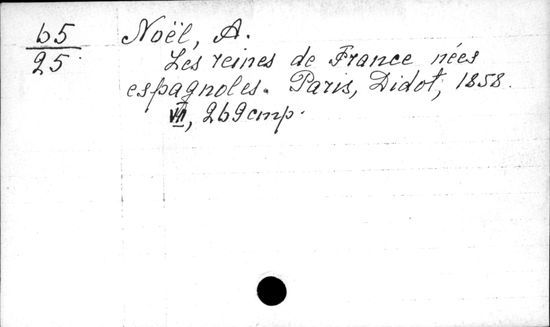 65
25
Noël, A.
Les reines de France nées
espagnoles. Paris, Didot, 1858.
VII, 269 стр.